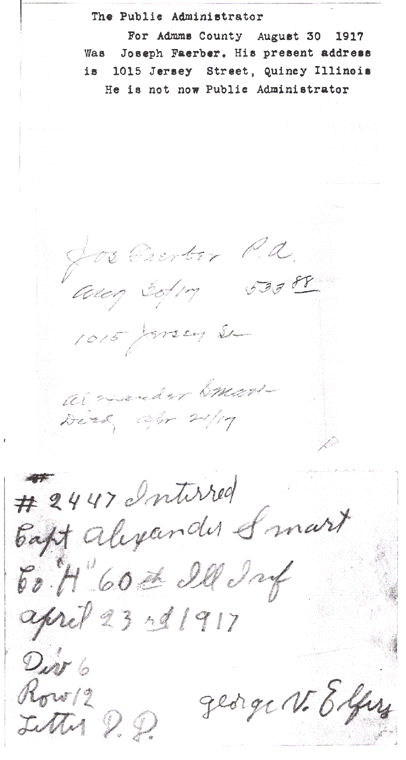 The Public Administrator
For Admms County August 30 1917
Was Joseph Faerber. His present address
is 1015 Jersey Street, Quincy Illinois
He is not now Public Administrator
Jos Faerber P.A.
Aug 30/17 533 88
1015 Jersey St
Alexander Smart
Died, Apr 21/17
# 2447 Interred
Capt Alexander Smart
Co "H" 60th Ill Inf
April 23rd 1917
Div 6
Row 12
Letter D.D.
George V. Elfers